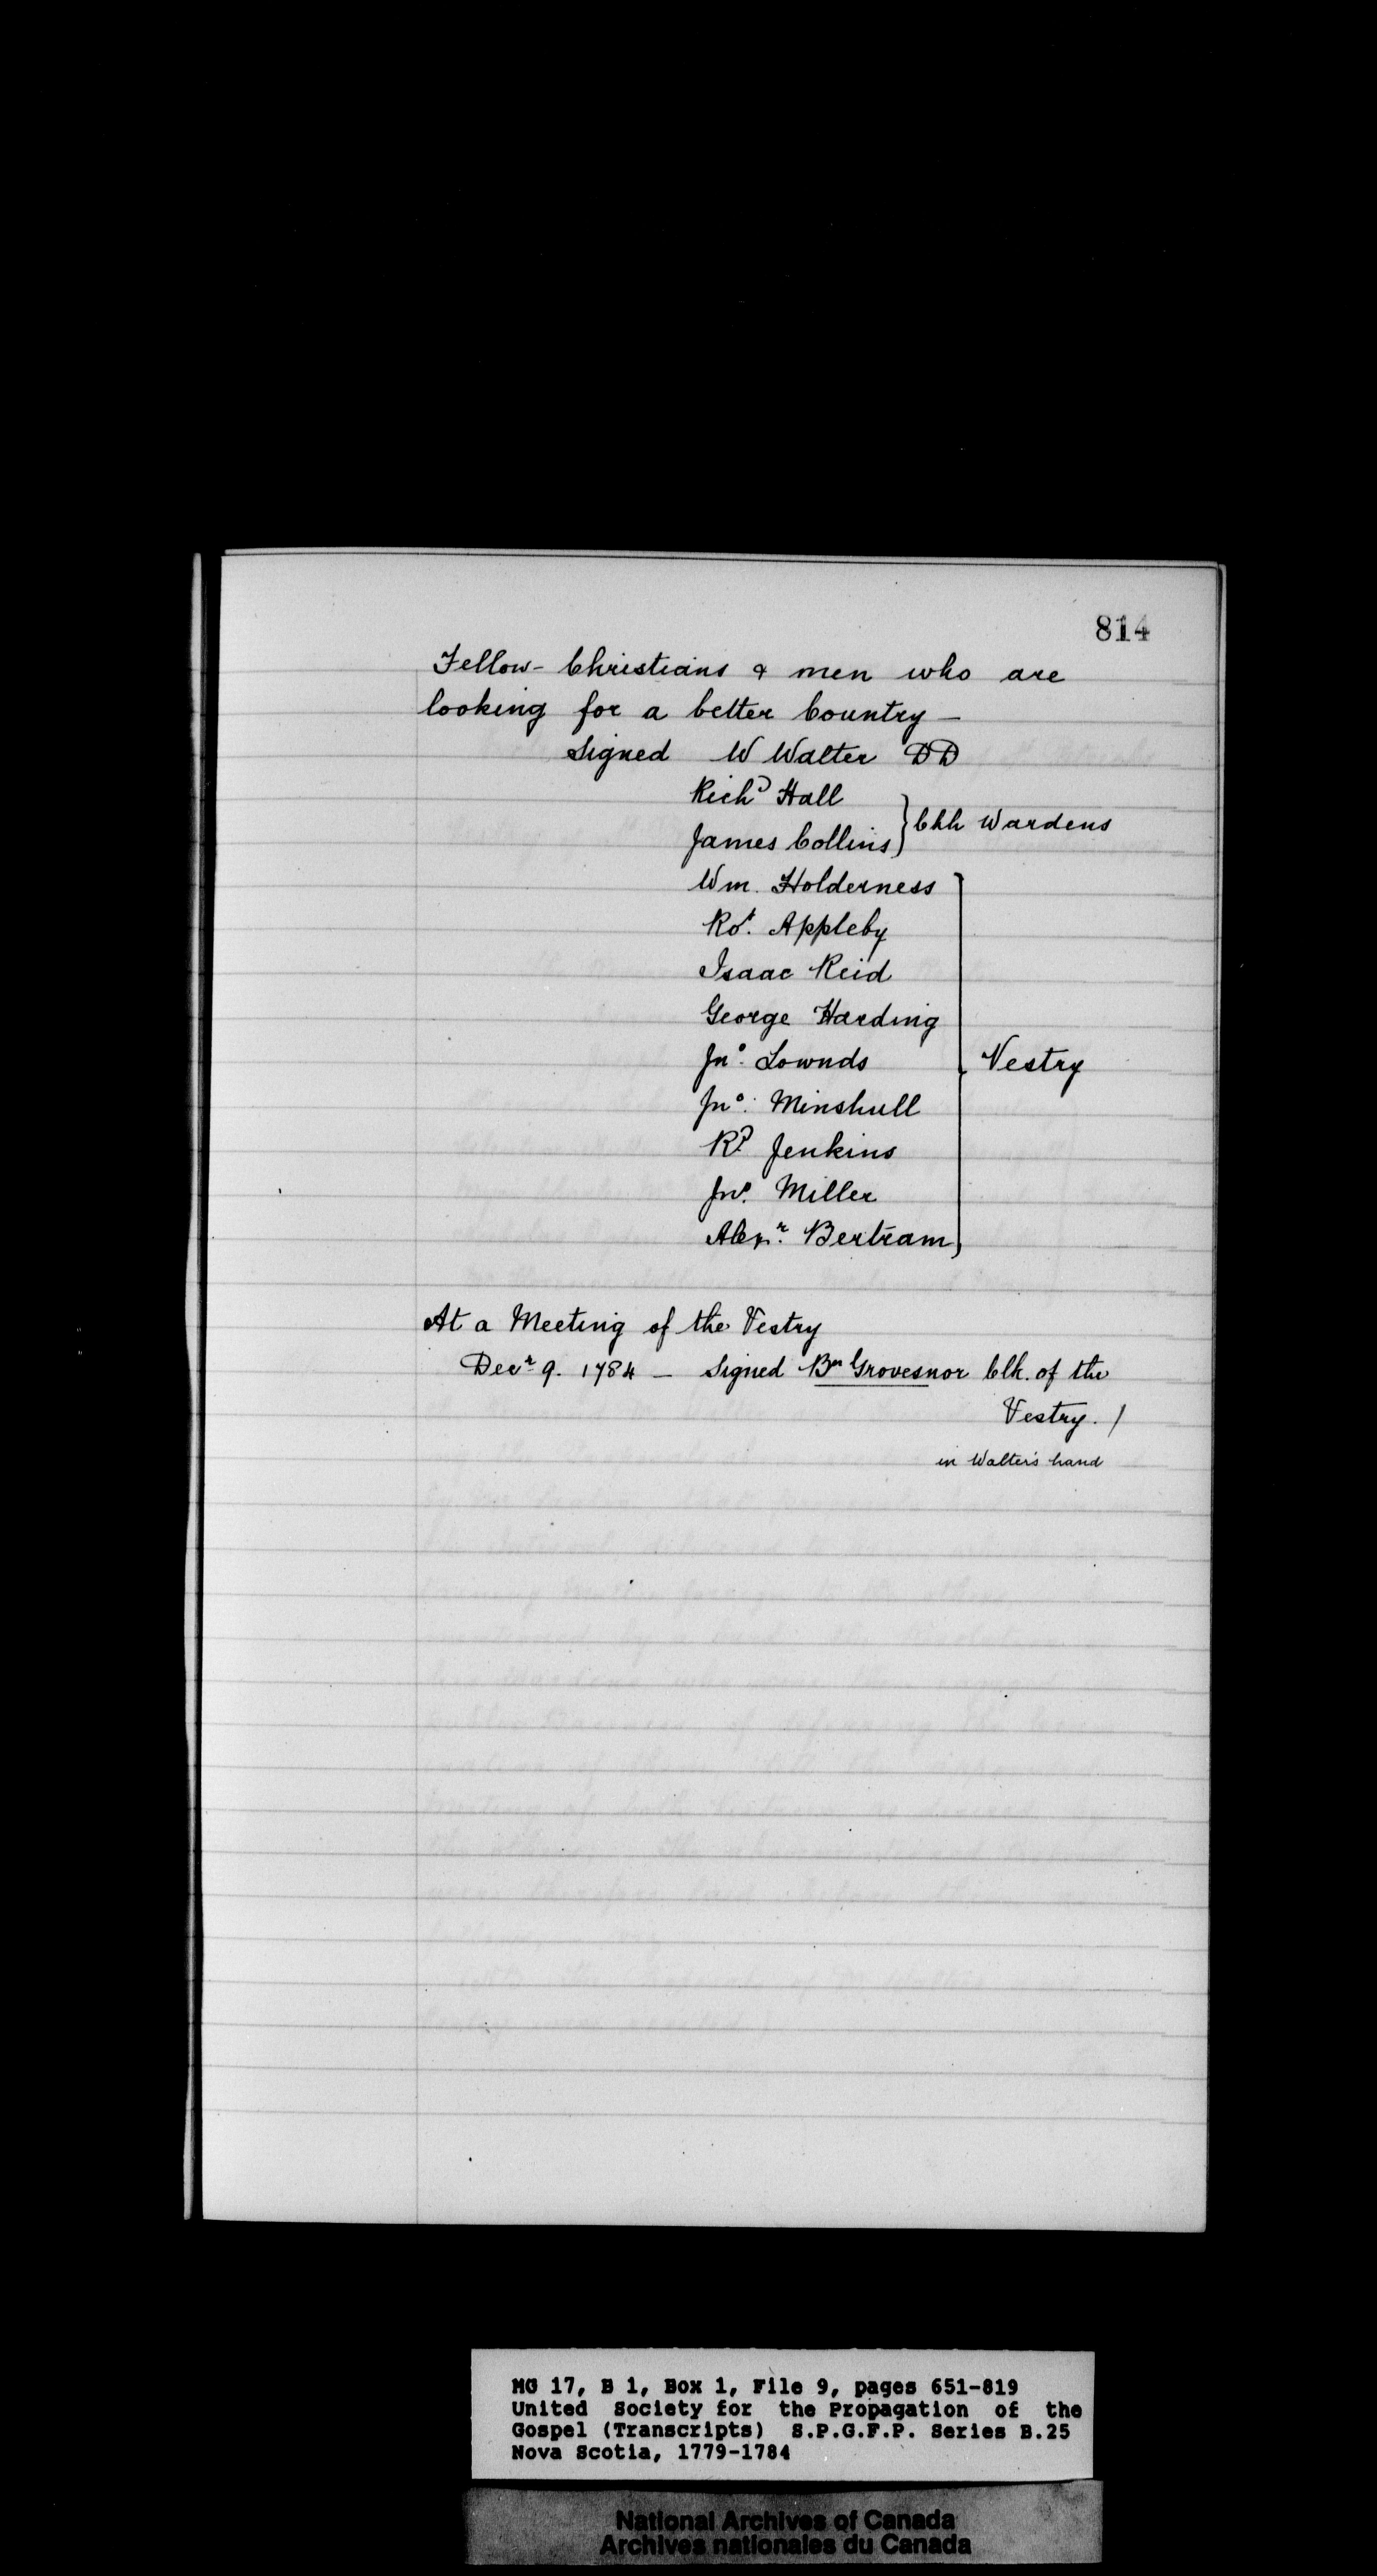 814
Fellow- Christians & men who are
looking for a better Country —
Signed W Walter DD
Richd Hall
James Collins } Chh Wardens
Wm. Holderness
Rot. Appleby
Isaac Reid
George Harding
Jno. Lownds } Vestry
Jno. Minshull
Rd. Jenkins
Jno. Miller
Alexr. Bertram
At a Meeting of the Vestry
Decr 9. 1784 — Signed Bn Grovesnor Clk. of the
Vestry. /
in Walter's hand
MG 17, B 1, Box 1, File 9, pages 651-819
United Society for the Propagation of the
Gospel (Transcripts) S.P.G.F.P. Series B.25
Nova Scotia, 1779-1784
National Archives of Canada
Archives nationales du Canada